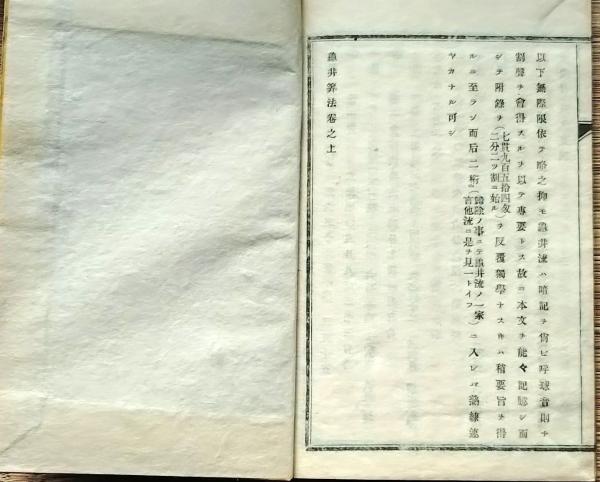 以下無際限依テ略之抑モ亀井流ハ暗記ヲ尚ビ呼球音則チ
割聲ヲ會得スルヲ以テ専要トス故ニ本文ヲ能々記臆シ而
シテ附錄ヲ(七貫九百五拾四匁二分二ツ割ニ始ル)ヲ反覆獨學ナス時ハ稍要旨ヲ得
ルニ至ラン而后二桁(歸除ノ事ニテ亀井流ノ一家言他流ニ是ヲ見一トイフ)ニ入レバ熟練速
ヤカナル可シ
亀井算法卷之上